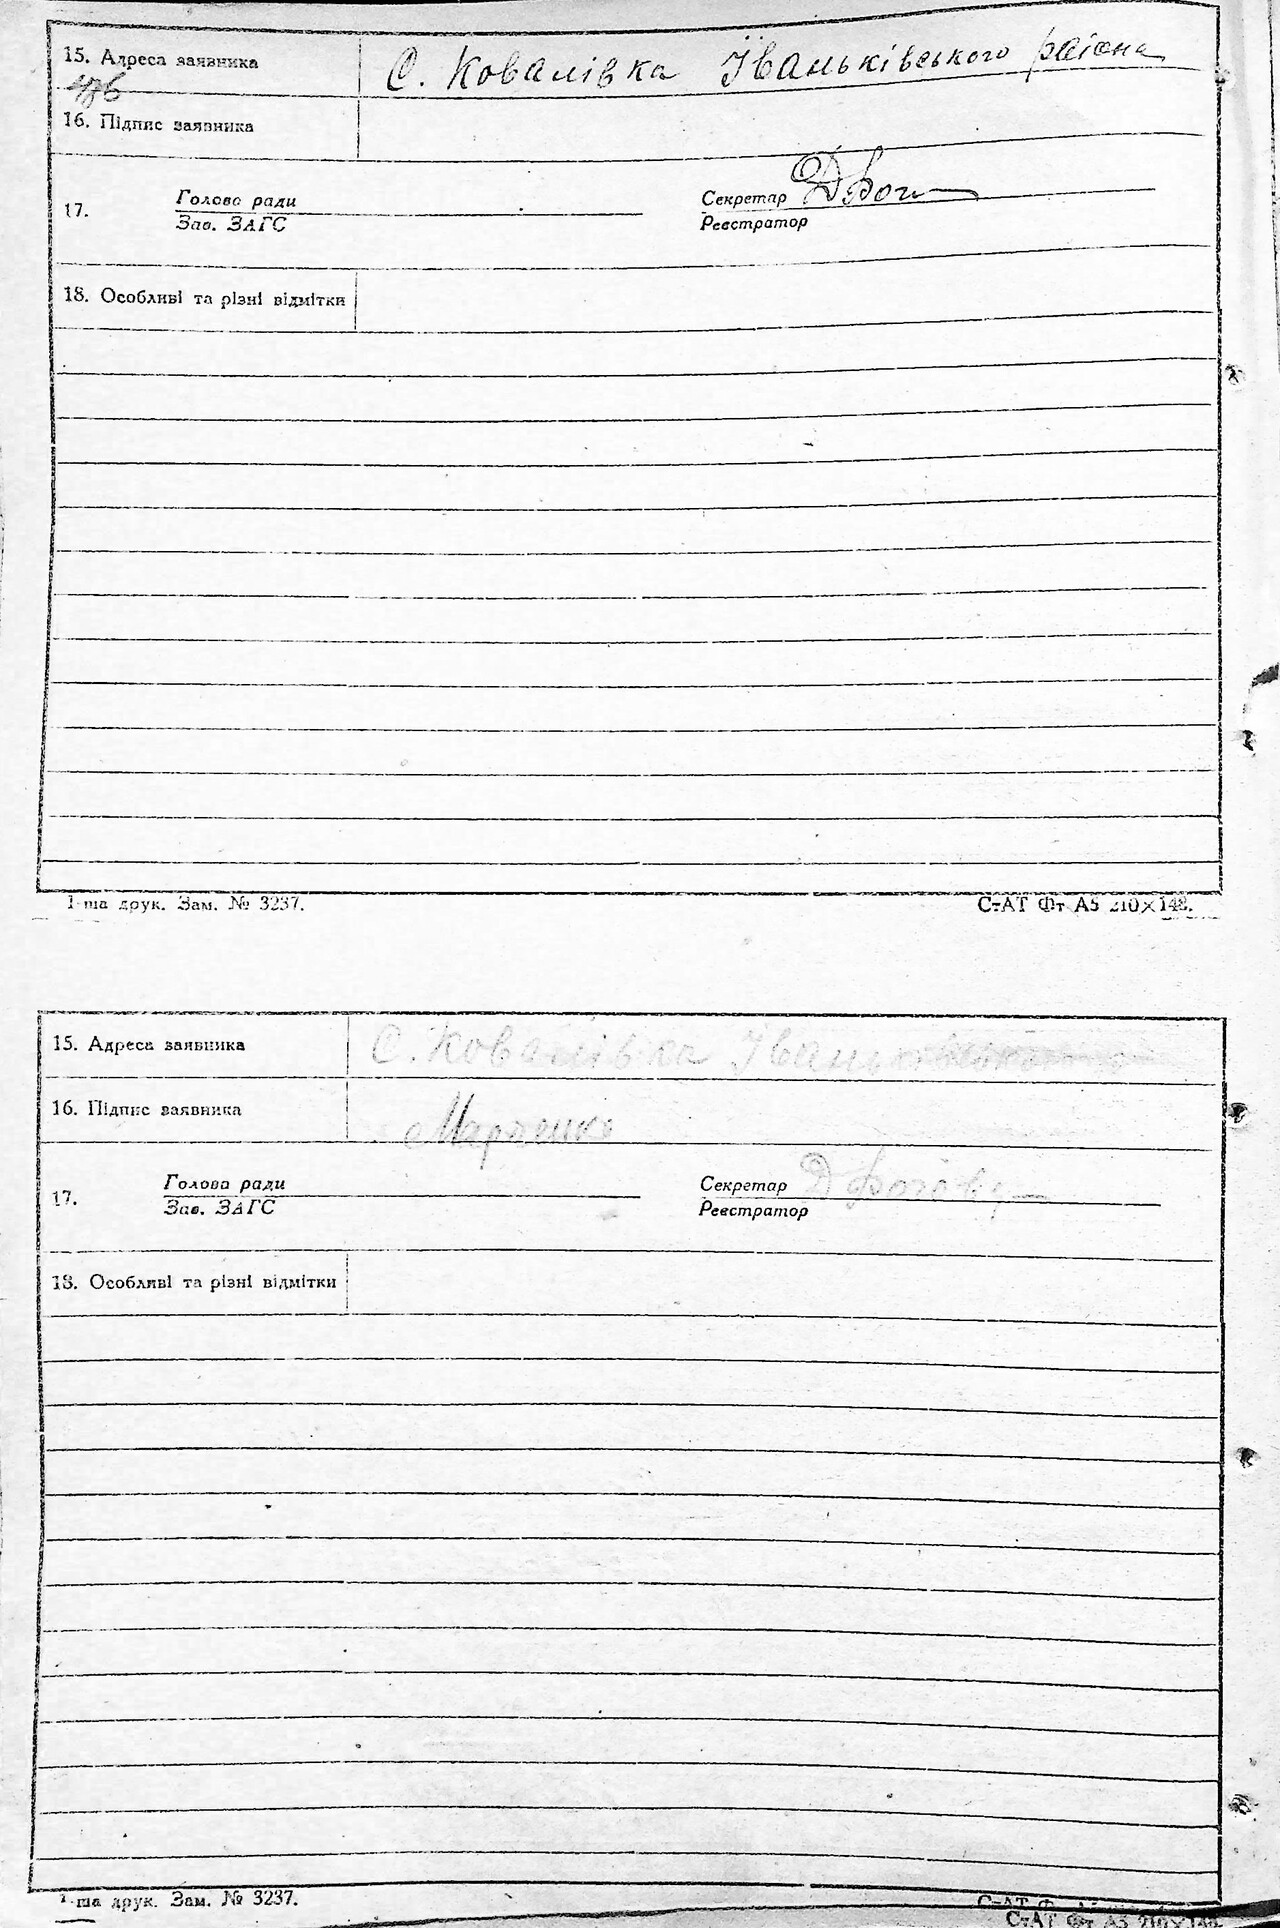 15. Адреса заявника С. Ковалівка Їваньківського раіона
16. Підпис заявника
17. Голова ради Секретар
Зав. ЗАГС Реєстратор
18. Особливі та різні відмітки
1-ша друк. Зам. № 3237. СтАТ Фт А5 210×148.
15. Адреса заявника С. Ковалівка Їваньківського
16. Підпис заявника Марченко
17. Голова ради Секретар
Зав. ЗАГС Реєстратор
18. Особливі та різні відмітки
1-ша друк. Зам. № 3237.
СтАТ Фт А5 210×148.